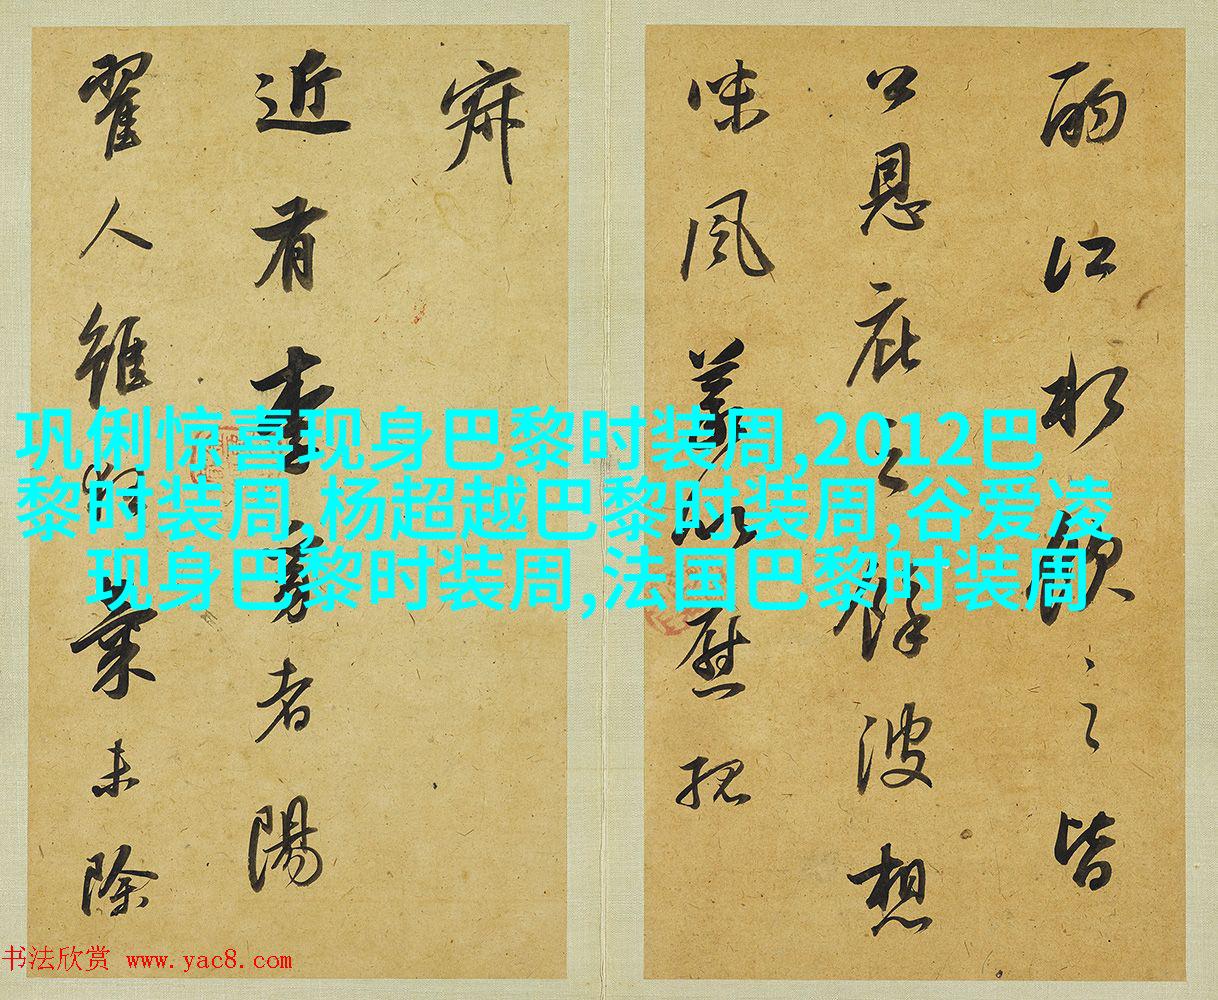 江水領之皆
公恩庇之餘波想
味風義以慰
近有李者陽
翟人雖業未除
巩俐惊喜现身巴黎时装周,2012巴
黎时装周,杨超越巴黎时装周,谷爱凌
现身巴黎时装周,法国巴黎时装周
书法欣赏 www.yac8.com